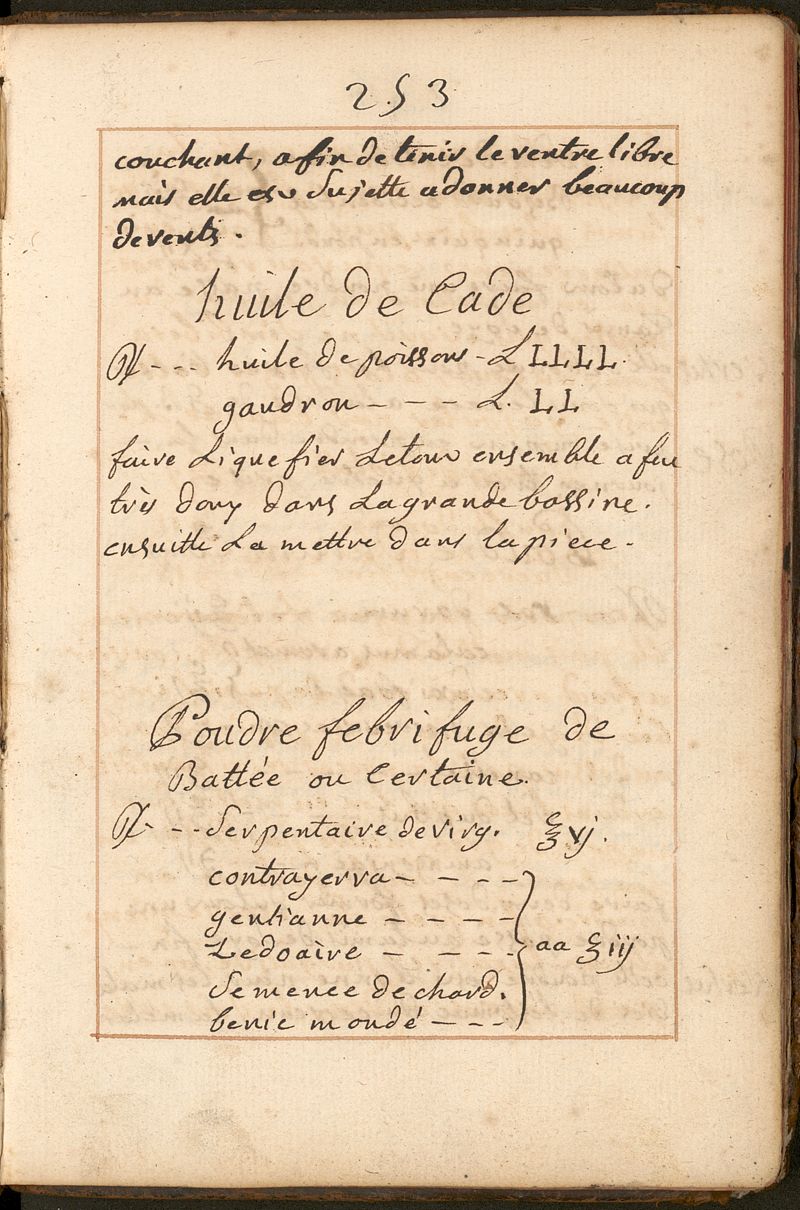 253
couchant, afin de tenir le ventre libre
mais elle est Sujette a donner beaucoup
de vents.
huile de Cade
℞ - - - huile de poissons - L LLLL.
gaudron - - - L. LL
faire Liquefier Letout ensemble a feu
très doux dans La grande bassine.
ensuitte La mettre dans la piece -
Poudre febrifuge de
Battée ou Certaine.
℞ - - Serpentaire de virg. ℥ vj.
contrayerva - - - -
gentianne - - - -
Zedoaire - - - - aa ℥ iij
Semence de chard.
benie mondé - - -